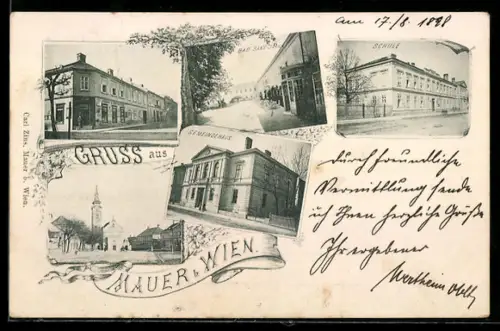 am 17./8. 1898
BAD SANT
SCHULE
GEMEINDEHAUS
GRUSS aus
MAUER b. WIEN.
Carl Zins, Mauer b. Wien.
Durch freundliche
Vermittlung sende
ich Ihnen herzliche Grüße
Ihr ergebener
Wertheim